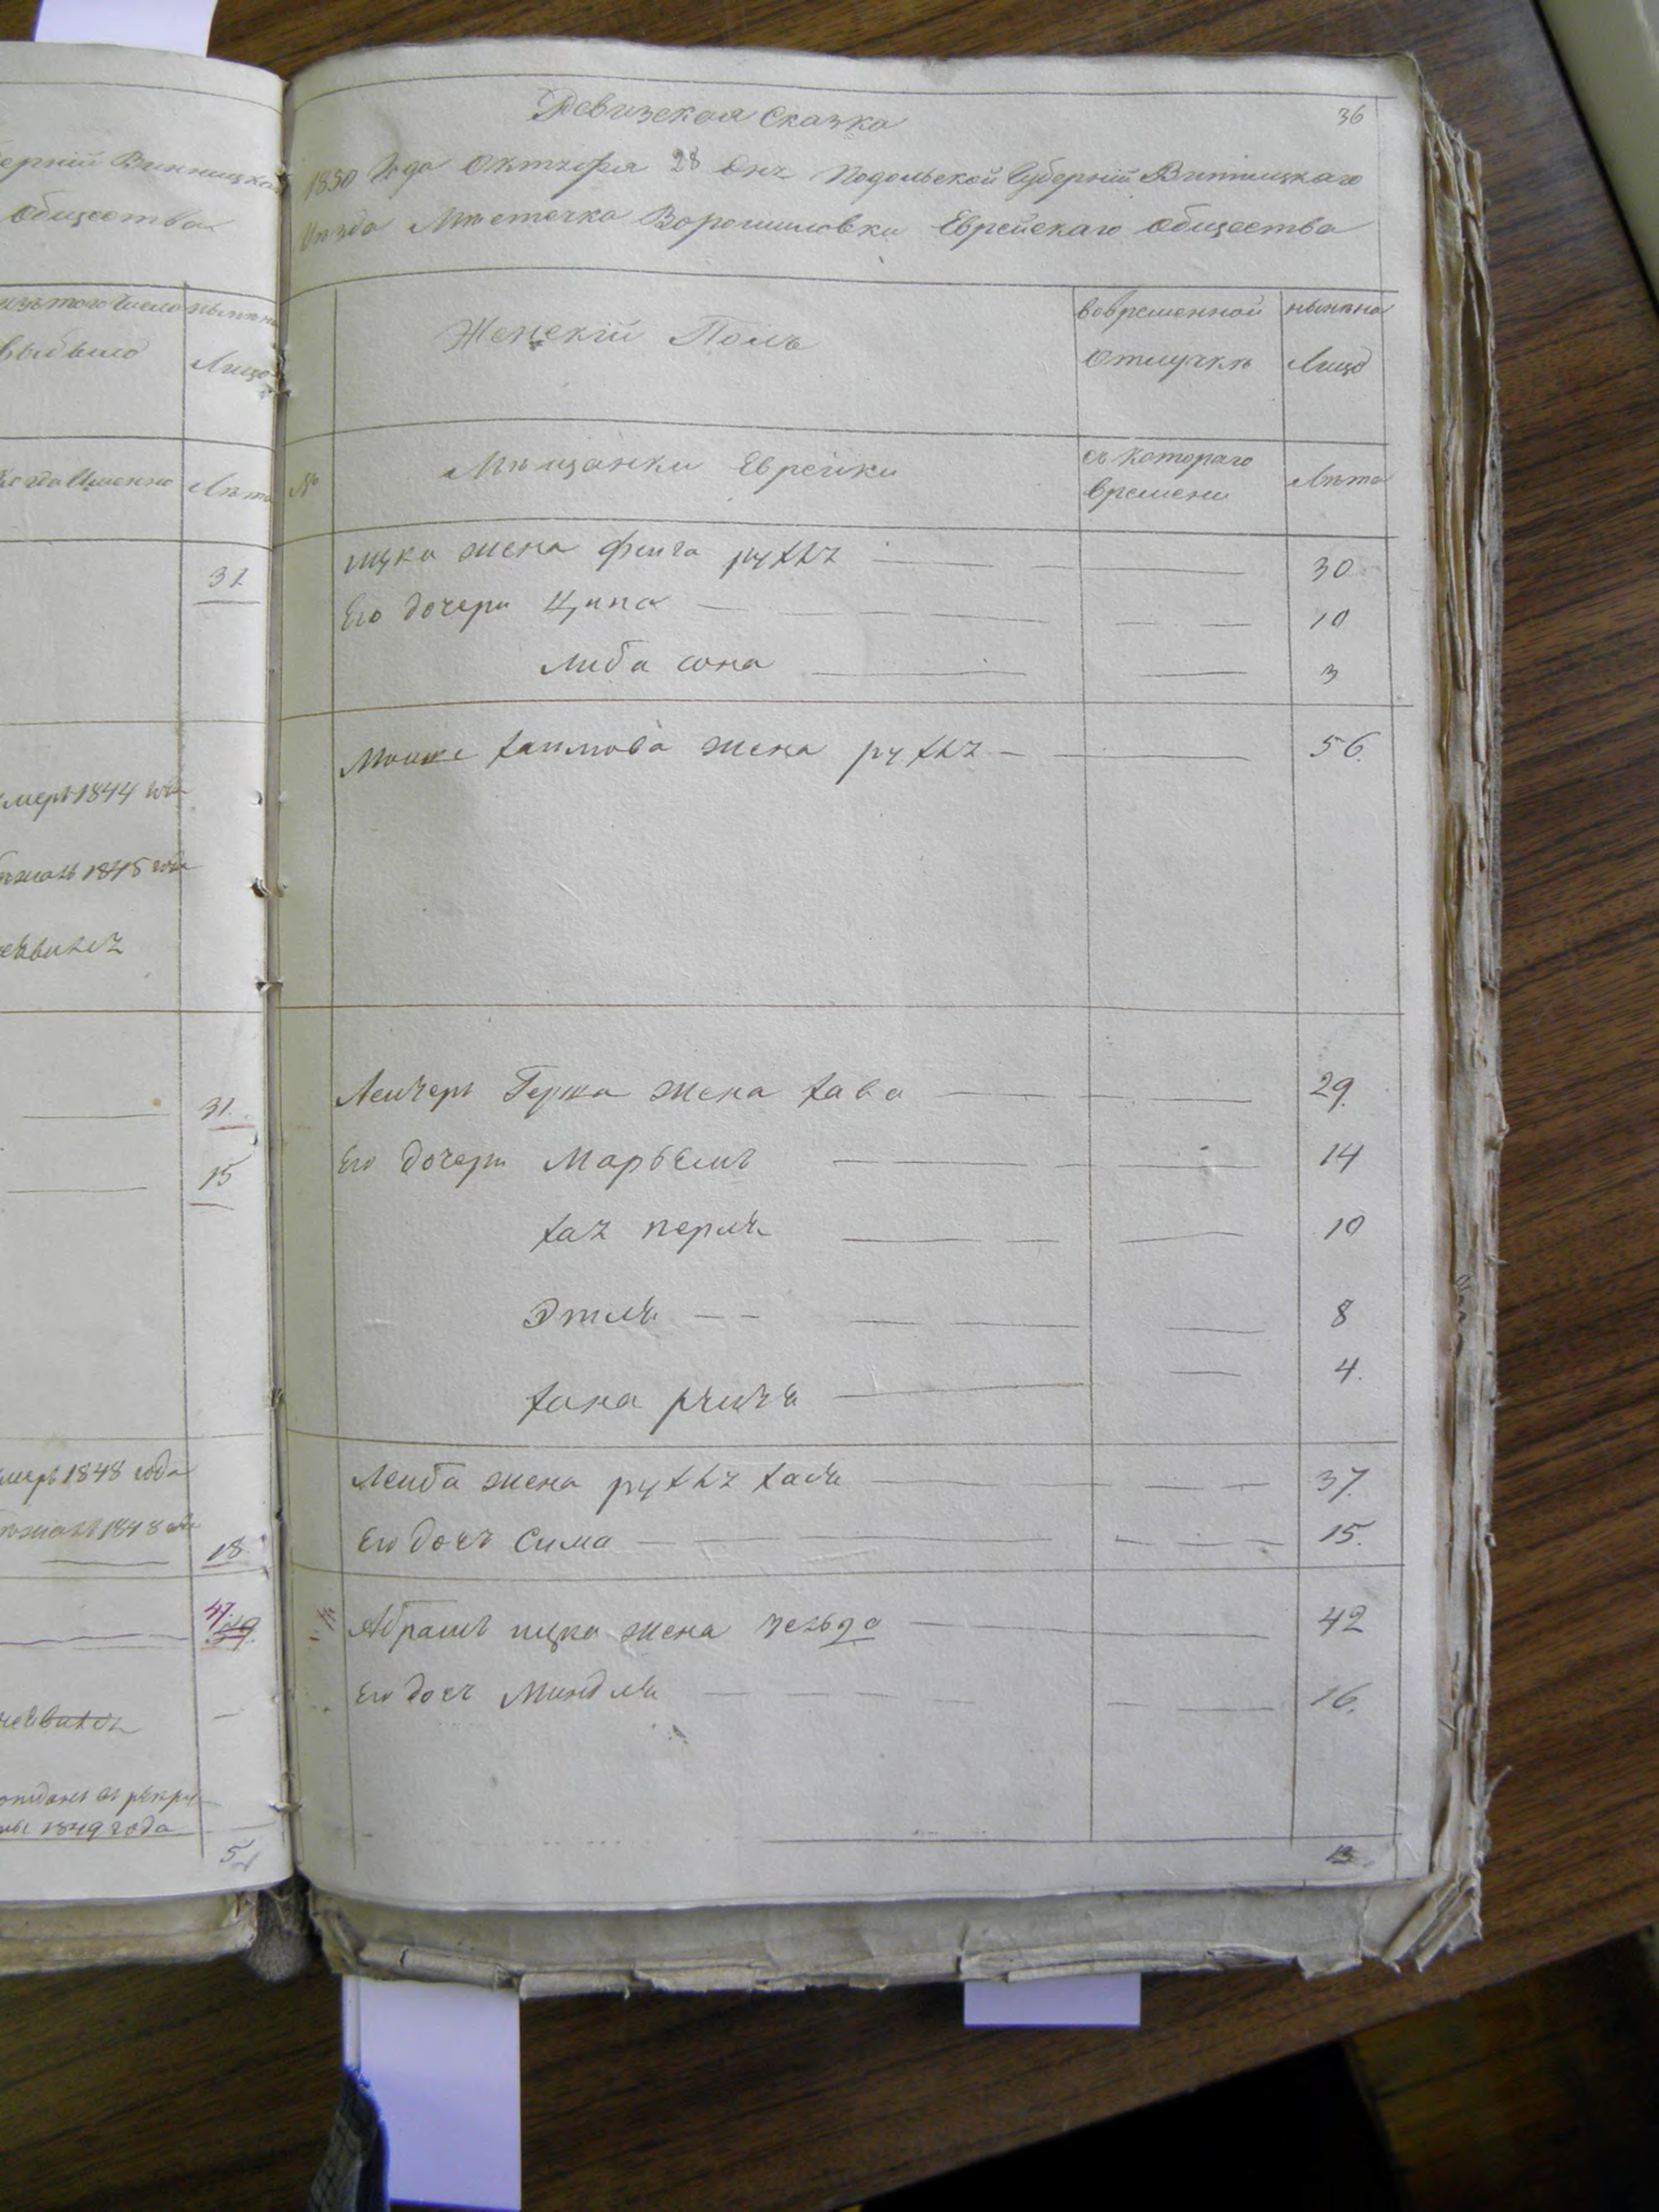 ерній Винницка
Общества
изъ того числа
выбыло
нынѣ на
Лицо
Когда Именно
Лѣта
31
умеръ 1844 года
1845 года
31.
15
умеръ 1848 года
1848
18
47.
1849 года
5
Ревизская Сказка
36
1850 Года Октября 28 дня Подольской Губерніи Винницкаго
Уѣзда Мѣстечка Ворошиловки Еврейскаго Общества
Женскій Полъ
вовременной
отлучкѣ
нынѣ на
Лицо
№
Мѣщанки Еврейки
съ котораго
времени
Лѣта
ицка жена фейга рухля 30
Его дочери Ципа 10
Либа сона 3
Мошке хаимова жена рухля 56.
Лейзеръ Герша жена хава 29.
Его дочери Марьемъ 14
хая перля 10
Этля 8
хана 4.
Лейба жена рухля хая 37.
Его дочь Сима 15.
Абрамъ ицка жена зельда 42
Его дочь Миндля 16.
13